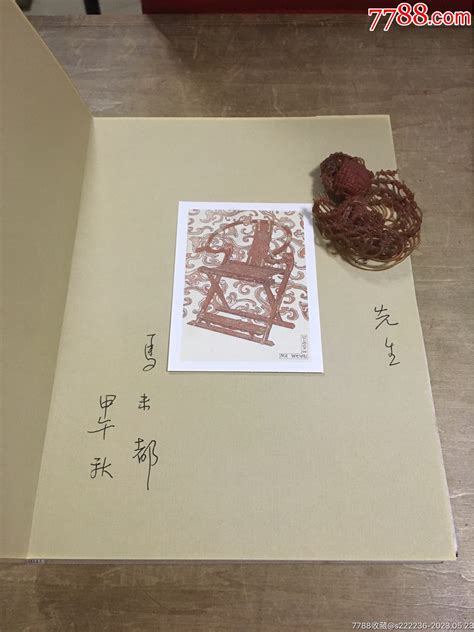 7788.com
先生
馬未都
甲午秋
7788收藏@s222236-2023.05.23